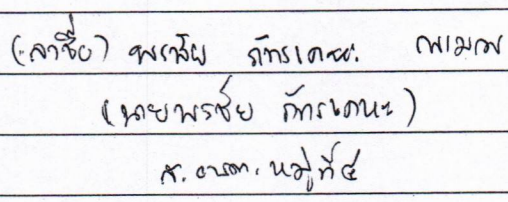 (ลงชื่อ) พรชัย ภัทรเคหะ
(นายพรชัย ภัทรเคหะ)
ส.อบต.หมู่ที่ ๔